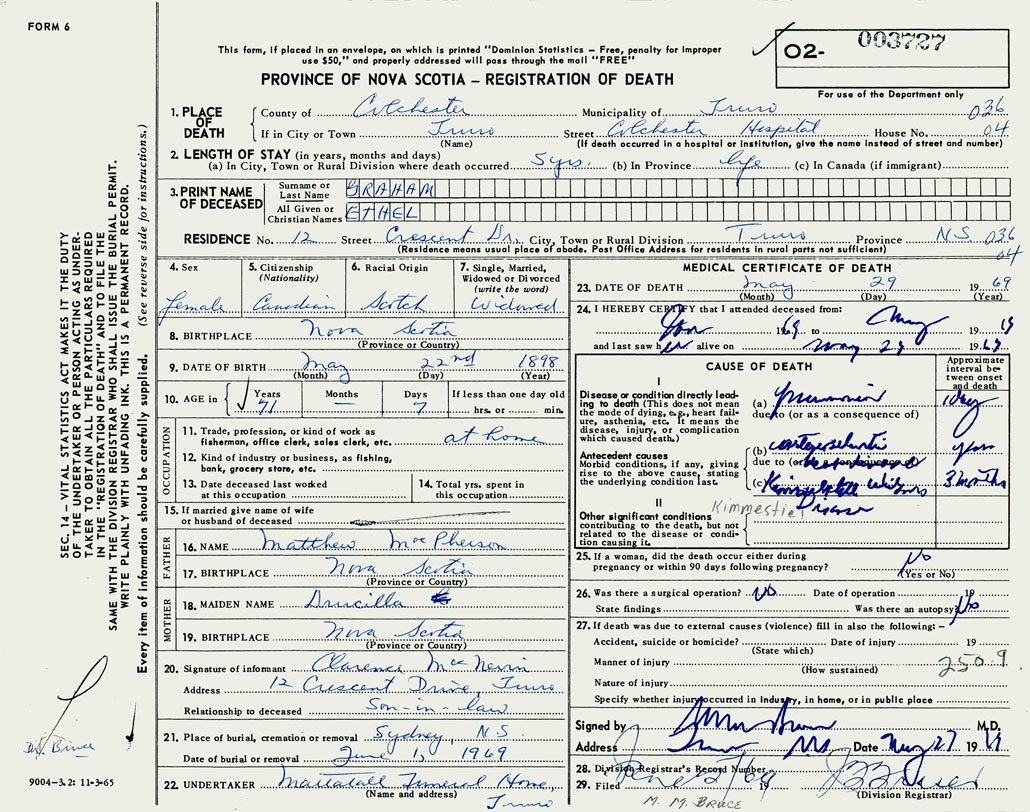 FORM 6
This form, if placed in an envelope, on which is printed "Dominion Statistics – Free, penalty for improper
use $50," and properly addressed will pass through the mail "FREE"
O2- 003727
PROVINCE OF NOVA SCOTIA – REGISTRATION OF DEATH
For use of the Department only
1. PLACE OF DEATH
County of Colchester Municipality of Truro 036
If in City or Town Truro Street Colchester Hospital House No. 04
(Name) (If death occurred in a hospital or institution, give the name instead of street and number)
2. LENGTH OF STAY (in years, months and days)
(a) In City, Town or Rural Division where death occurred 5 yrs. (b) In Province life (c) In Canada (if immigrant)
3. PRINT NAME OF DECEASED
Surname or Last Name GRAHAM
All Given or Christian Names ETHEL
RESIDENCE No. 12 Street Crescent Dr. City, Town or Rural Division Truro Province N S 036
(Residence means usual place of abode. Post Office Address for residents in rural parts not sufficient) 04
4. Sex
female
5. Citizenship
(Nationality)
Canadian
6. Racial Origin
Scotch
7. Single, Married,
Widowed or Divorced
(write the word)
Widowed
8. BIRTHPLACE Nova Scotia
(Province or Country)
9. DATE OF BIRTH May 22nd 1898
(Month) (Day) (Year)
10. AGE in Years Months Days If less than one day old
71 — 7 hrs. or min.
OCCUPATION
11. Trade, profession, or kind of work as
fisherman, office clerk, sales clerk, etc. at home
12. Kind of industry or business, as fishing,
bank, grocery store, etc.
13. Date deceased last worked
at this occupation
14. Total yrs. spent in
this occupation
15. If married give name of wife
or husband of deceased
FATHER
16. NAME Matthew MacPherson
17. BIRTHPLACE Nova Scotia
(Province or Country)
MOTHER
18. MAIDEN NAME Druscilla
19. BIRTHPLACE Nova Scotia
(Province or Country)
20. Signature of informant Clarence
Address 12 Crescent Drive, Truro
Relationship to deceased Son-in-law
21. Place of burial, cremation or removal Sydney, N S
Date of burial or removal June 1, 1969
22. UNDERTAKER Mattatall Funeral Home,
(Name and address) Truro
MEDICAL CERTIFICATE OF DEATH
23. DATE OF DEATH May 29 1969
(Month) (Day) (Year)
24. I HEREBY CERTIFY that I attended deceased from:
Jan 1969 to May 1969
and last saw her alive on May 1969
CAUSE OF DEATH
Approximate
interval be-
tween onset
and death
I
Disease or condition directly lead-
ing to death (This does not mean
the mode of dying, e.g., heart fail-
ure, asthenia, etc. It means the
disease, injury, or complication
which caused death.)
(a) pneumonia 1 day
due to (or as a consequence of)
Antecedent causes
Morbid conditions, if any, giving
rise to the above cause, stating
the underlying condition last.
(b) years
due to
(c) 3 months
II
Kimmestiel
Other significant conditions
contributing to the death, but not
related to the disease or condi-
tion causing it.
25. If a woman, did the death occur either during
pregnancy or within 90 days following pregnancy? No
(Yes or No)
26. Was there a surgical operation? No Date of operation 19
State findings Was there an autopsy? No
27. If death was due to external causes (violence) fill in also the following: –
Accident, suicide or homicide? Date of injury 19
(State which)
Manner of injury 250.9
(How sustained)
Nature of injury
Specify whether injury occurred in Industry, in home, or in public place
Signed by M.D.
Address Truro NS Date 1969
28. Division Registrar's Record Number
29. Filed June 2/69 19
(Division Registrar)
M. M. BRUCE
SEC. 14 – VITAL STATISTICS ACT MAKES IT THE DUTY
OF THE UNDERTAKER OR PERSON ACTING AS UNDER-
TAKER TO OBTAIN ALL THE PARTICULARS REQUIRED
IN THE "REGISTRATION OF DEATH" AND TO FILE THE
SAME WITH THE DIVISION REGISTRAR WHO SHALL ISSUE THE BURIAL PERMIT.
WRITE PLAINLY WITH UNFADING INK. THIS IS A PERMANENT RECORD.
Every item of information should be carefully supplied. (See reverse side for instructions.)
Dr. Bruce
9004-3.2: 11-3-65